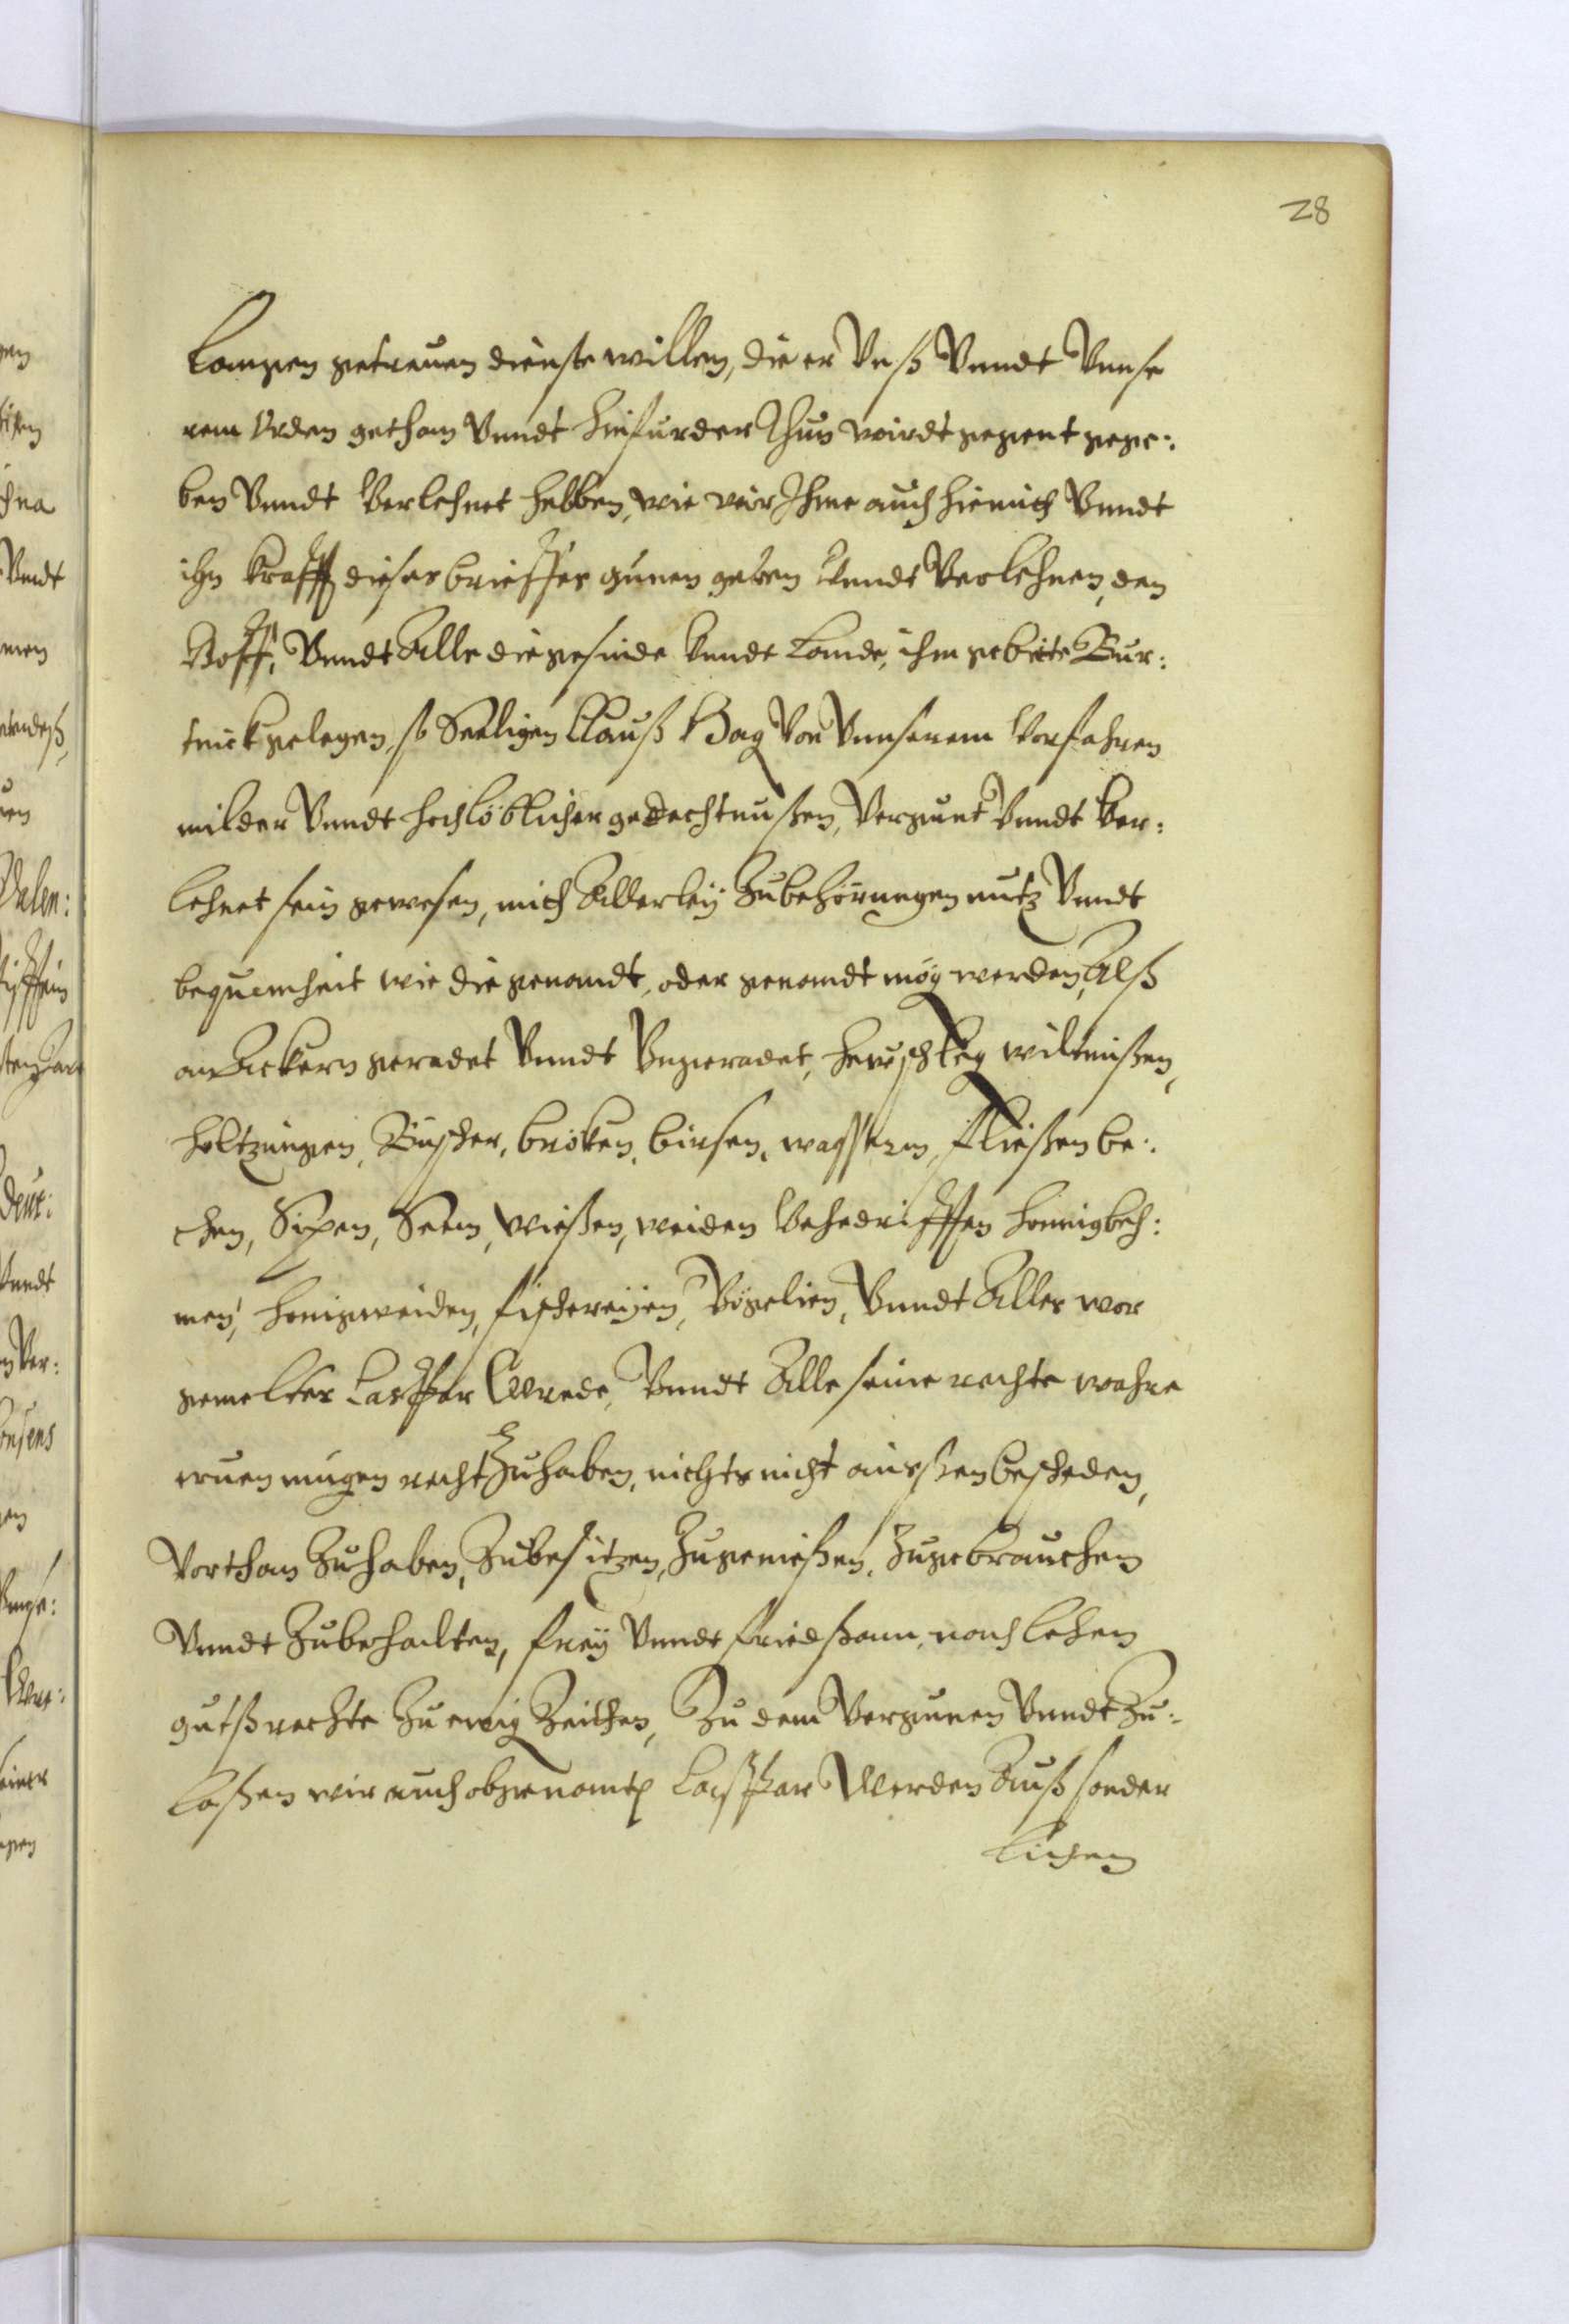 28
langen getreuen dienste willen, die er Vnß Vnndt Vnnse
rem Orden gethan Vnndt hinfurder thun wirdt gegent gege:
ben Vnndt Verlehnet hebben, wie wir Ihme auch hiemith Vnndt
ihn krafft dieses brieffes gunnen geben Vnndt Verlehnen, den
Hoff, Vnndt Alle die gesinde Vnndt Lande, ihm gebiete Bur:
tnick gelegen, so Seeligen Clauß Hag Von Vnnserem Vorfahren
milder Vnndt hochlöblicher gedechtnußen, Vergunt Vnndt Ver:
lehnet sein gewesen, mith Allerleÿ Zubehörungen nutz Vnndt
bequemheit wie die genandt, oder genandt mög werden, Alß
an Ackern geradet Vnndt Vngeradet, heuschleg wiltnißen,
holtzungen, Büscher, bröken, birsen, wassern, fließen be:
chen, Sipen, Seen, wießen, weiden Vehedrifften honnigbeh:
men, honigweiden, fischereÿen, Vögelien, Vnndt Alles wor
gemelter Casspar Wrede, Vnndt Alle seine rechte wahre
eruen mugen recht Zuhaben, nichts nicht aussen bescheden,
Vorthan Zuhaben, Zubesitzen, Zugenießen, Zugebrauchen
Vnndt Zubehalten, freÿ Vnndt friedßam, nach lehen
gutß rechte Zu ewig Zeithen, Zu dem Vergunen Vnndt Zu:
laßen wir auch obgenamtn Casspar Wreden Auß sonder
lichen